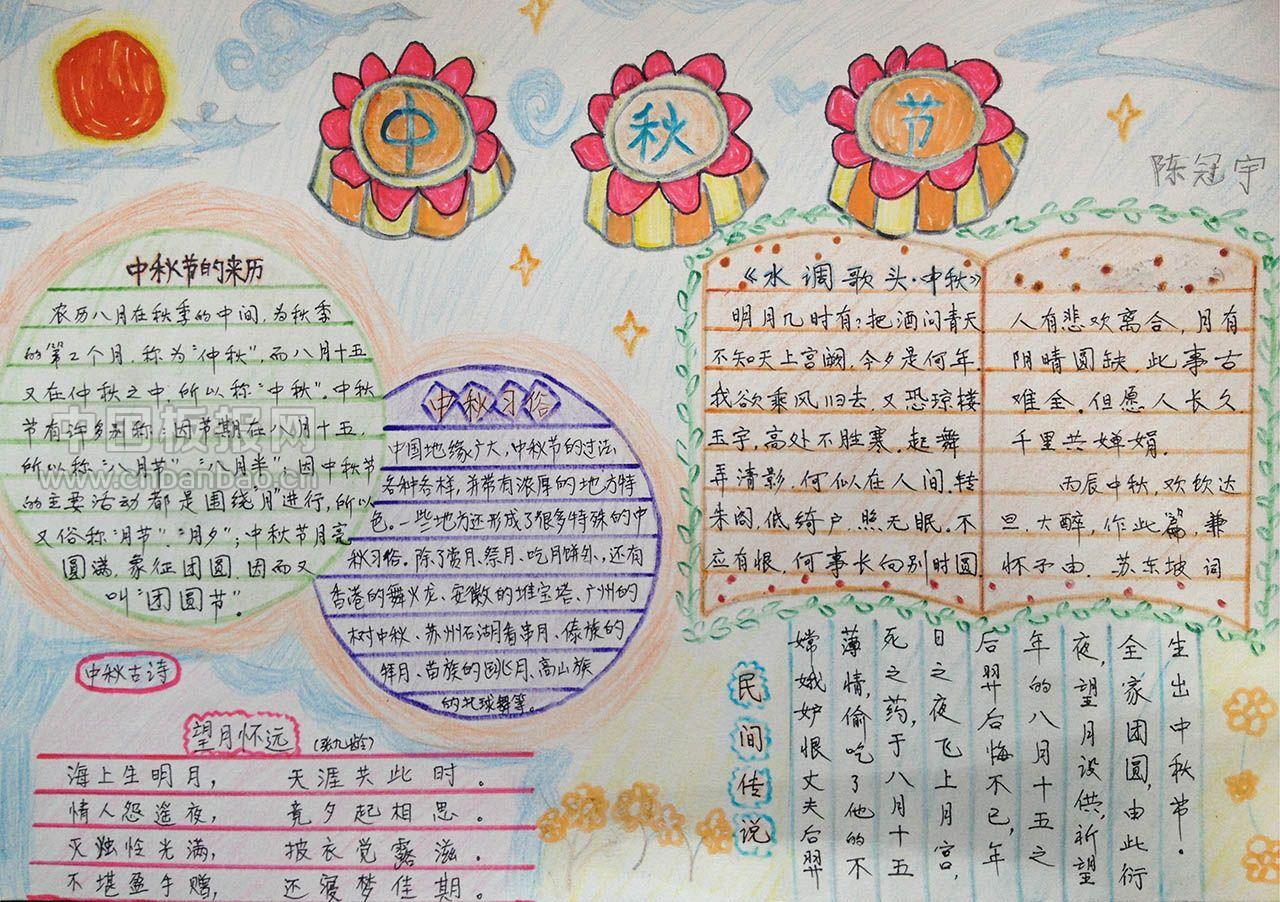 中秋节
陈冠宇
中秋节的来历
农历八月在秋季的中间,为秋季
的第2个月,称为“仲秋”,而八月十五
又在仲秋之中,所以称“中秋”。中秋
节有许多别称:因节期在八月十五,
所以称“八月节”、“八月半”;因中秋节
的主要活动都是围绕“月”进行,所以
又俗称“月节”、“月夕”;中秋节月亮
圆满,象征团圆,因而又
叫“团圆节”。
中国板报网
www.chbanbao.cn
中秋习俗
中国地缘广大,中秋节的习法
各种各样,并带有浓厚的地方特
色。一些地方还形成了很多特殊的中
秋习俗。除了赏月、祭月、吃月饼外,还有
香港的舞火龙、安徽的堆宝塔、广州的
树中秋、苏州石湖看串月、傣族的
拜月、苗族的跳月、高山族
的托球舞等。
《水调歌头·中秋》
明月几时有?把酒问青天.
不知天上宫阙,今夕是何年.
我欲乘风归去,又恐琼楼
玉宇,高处不胜寒.起舞
弄清影,何似在人间.转
朱阁,低绮户,照无眠.不
应有恨,何事长向别时圆.
人有悲欢离合,月有
阴晴圆缺,此事古
难全.但愿人长久
千里共婵娟.
丙辰中秋,欢饮达
旦,大醉,作此篇,兼
怀子由.苏东坡词
中秋古诗
望月怀远 (张九龄)
海上生明月, 天涯共此时。
情人怨遥夜, 竟夕起相思。
灭烛怜光满, 披衣觉露滋。
不堪盈手赠, 还寝梦佳期。
民间传说
嫦娥妒恨丈夫后羿
薄情,偷吃了他的不
死之药,于八月十五
日之夜飞上月宫,
后羿后悔不已,年
年的八月十五之
夜,望月设供,祈望
全家团圆,由此衍
生出中秋节.